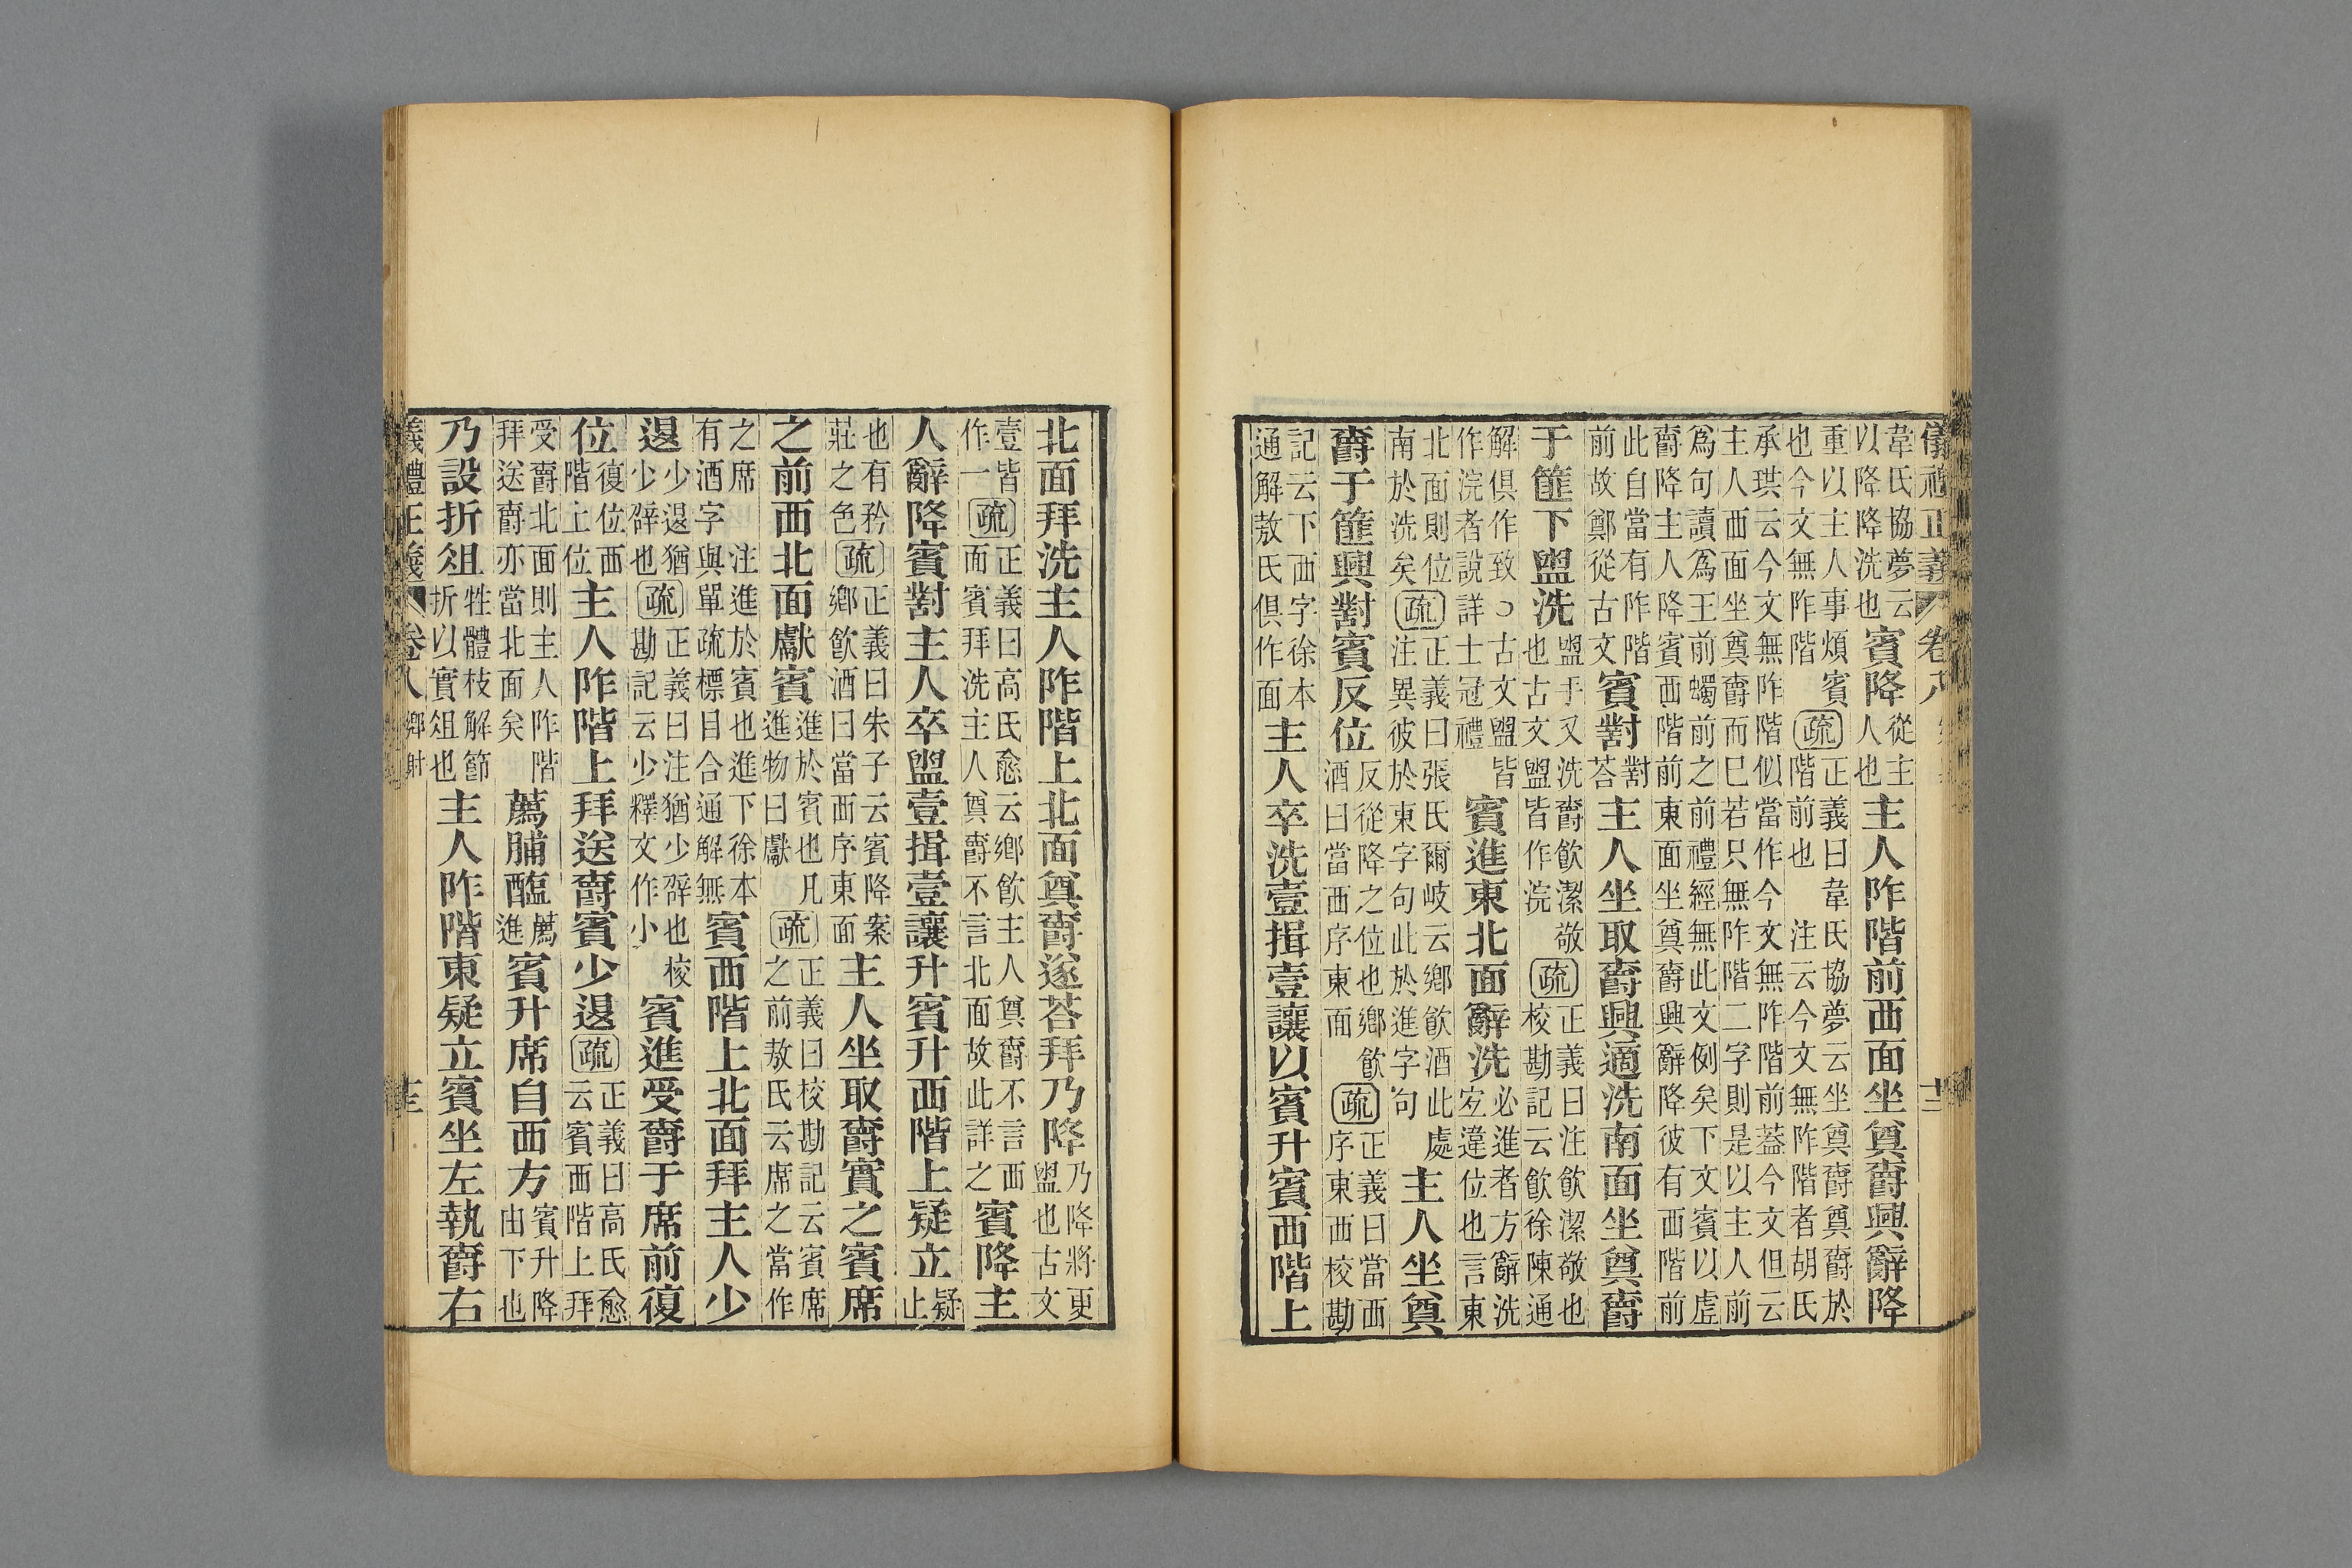 儀禮正義 卷八 十二
韋氏協夢云以降降洗也賓降從主人也主人阼階前西面坐奠爵興辭降
重以主人事煩賓也今文無阼階疏正義曰韋氏協夢云坐奠爵奠爵於階前也 注云今文無阼階者胡氏
承珙云今文無阼階似當作今文無阼階前蓋今文但云主人西面坐奠爵而巳若只無阼階二字則是以主人前
爲句讀爲王前蠋前之前禮經無此文例矣下文賓以虛爵降主人降賓西階前東面坐奠爵興辭降彼有西階前
此自當有阼階前故鄭從古文賓對對荅主人坐取爵興適洗南面坐奠爵
于篚下盥洗盥于又洗爵飲潔敬也古文盥皆作浣疏正義曰注飲潔敬也校勘記云飲徐陳通
解俱作致○古文盥皆作浣者說詳士冠禮賓進東北面辭洗必進者方辭洗宐違位也言東
北面則位南於洗矣疏正義曰張氏爾岐云鄉飲酒此處注異彼於東字句此於進字句主人坐奠
爵于篚興對賓反位反從降之位也鄉飲酒曰當西序東面疏正義曰當西序東西校勘
記云下西字徐本通解敖氏俱作面主人卒洗壹揖壹讓以賓升賓西階上
北面拜洗主人阼階上北面奠爵遂荅拜乃降乃降將更盥也古文
壹皆作一疏正義曰高氏愈云鄉飲主人奠爵不言西面賓拜洗主人奠爵不言北面故此詳之賓降主
人辭降賓對主人卒盥壹揖壹讓升賓升西階上疑立疑止
也有矜莊之色疏正義曰朱子云賓降案鄉飲酒曰當西序東面主人坐取爵實之賓席
之前西北面獻賓進於賓也凡進物曰獻疏正義曰校勘記云賓席之前敖氏云席之當作
之席 注進於賓也進下徐本有酒字與單疏標目合通解無賓西階上北面拜主人少
退少退猶少辟也疏正義曰注猶少辟也校勘記云少釋文作小賓進受爵于席前復
位復位西階上位主人阼階上拜送爵賓少退疏正義曰高氏愈云賓西階上拜
受爵北面則主人阼階拜送爵亦當北面矣薦脯醢薦進賓升席自西方賓升降由下也
乃設折俎牲體枝解節折以實俎也主人阼階東疑立賓坐左執爵右
義禮正義 卷八 鄉射